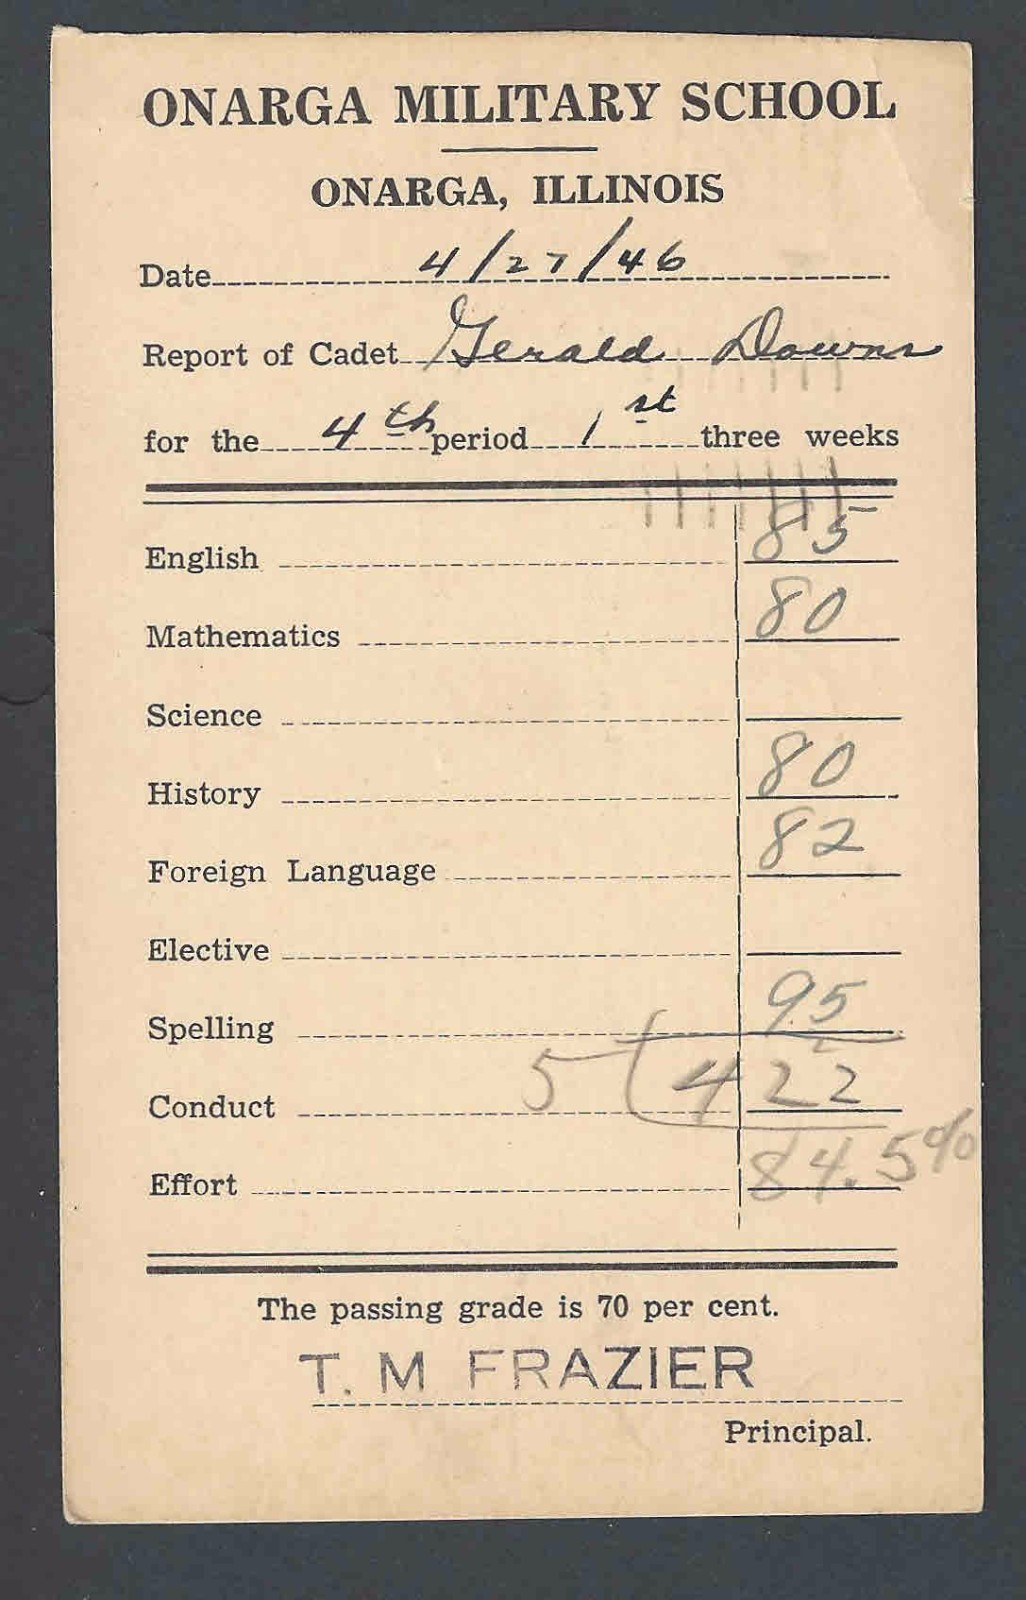 ONARGA MILITARY SCHOOL
ONARGA, ILLINOIS
Date 4/27/46
Report of Cadet Gerald Downs
for the 4th period 1st three weeks
English 85
Mathematics 80
Science
History 80
Foreign Language 82
Elective
Spelling 95
Conduct 5 422
Effort 84.5%
The passing grade is 70 per cent.
T. M FRAZIER
Principal.